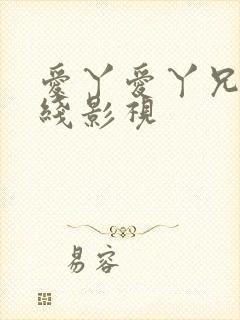 愛丫愛丫兄
綫影視
易容